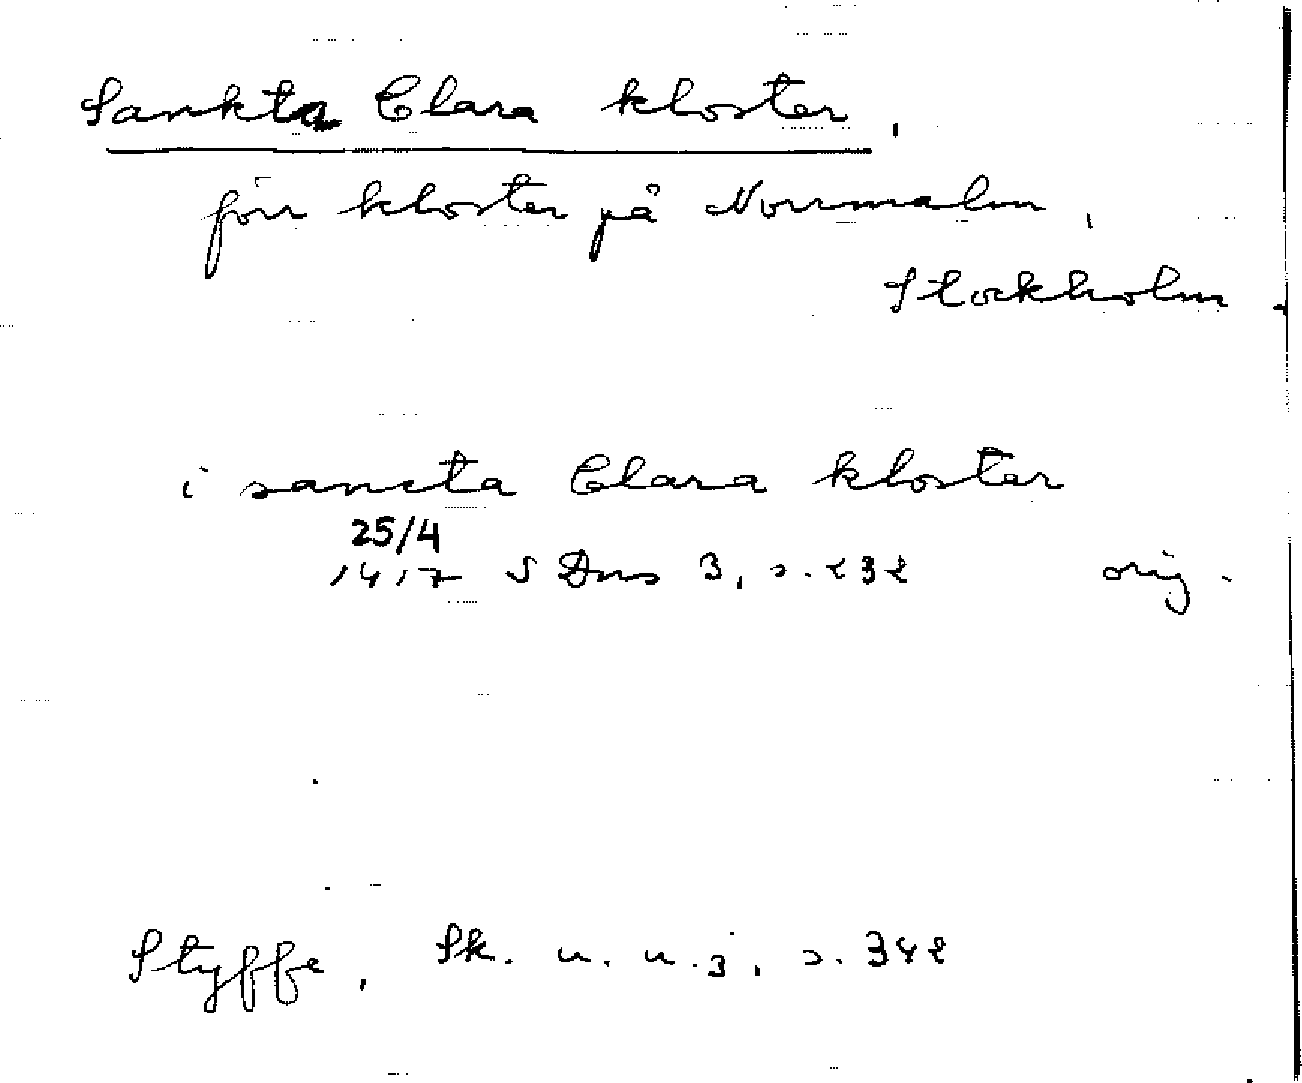 Sankta Clara kloster,
förr kloster på Norrmalm,
Stockholm.
i sancta Clara kloster
25/4
1417 SDns 3, s. 232 orig.
Styffe, Sk. u. u. 3, s. 342